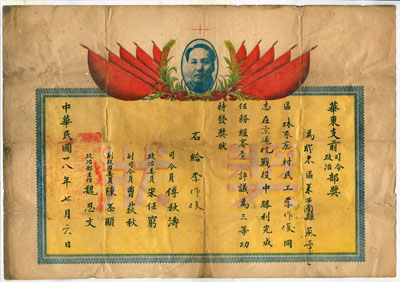 華東支前司令政治部獎
為膠東區萊西縣
區林家庄村民工李作俊同
志在京滬杭戰役中勝利完成
任務經審查評議為三等功
特發獎狀
右給李作俊
司令員傅秋濤
政治委員宋任窮
副司令員曹荻秋
副政治委員陳丕顯
政治部主任魏思文
中華民國卅八年七月六日